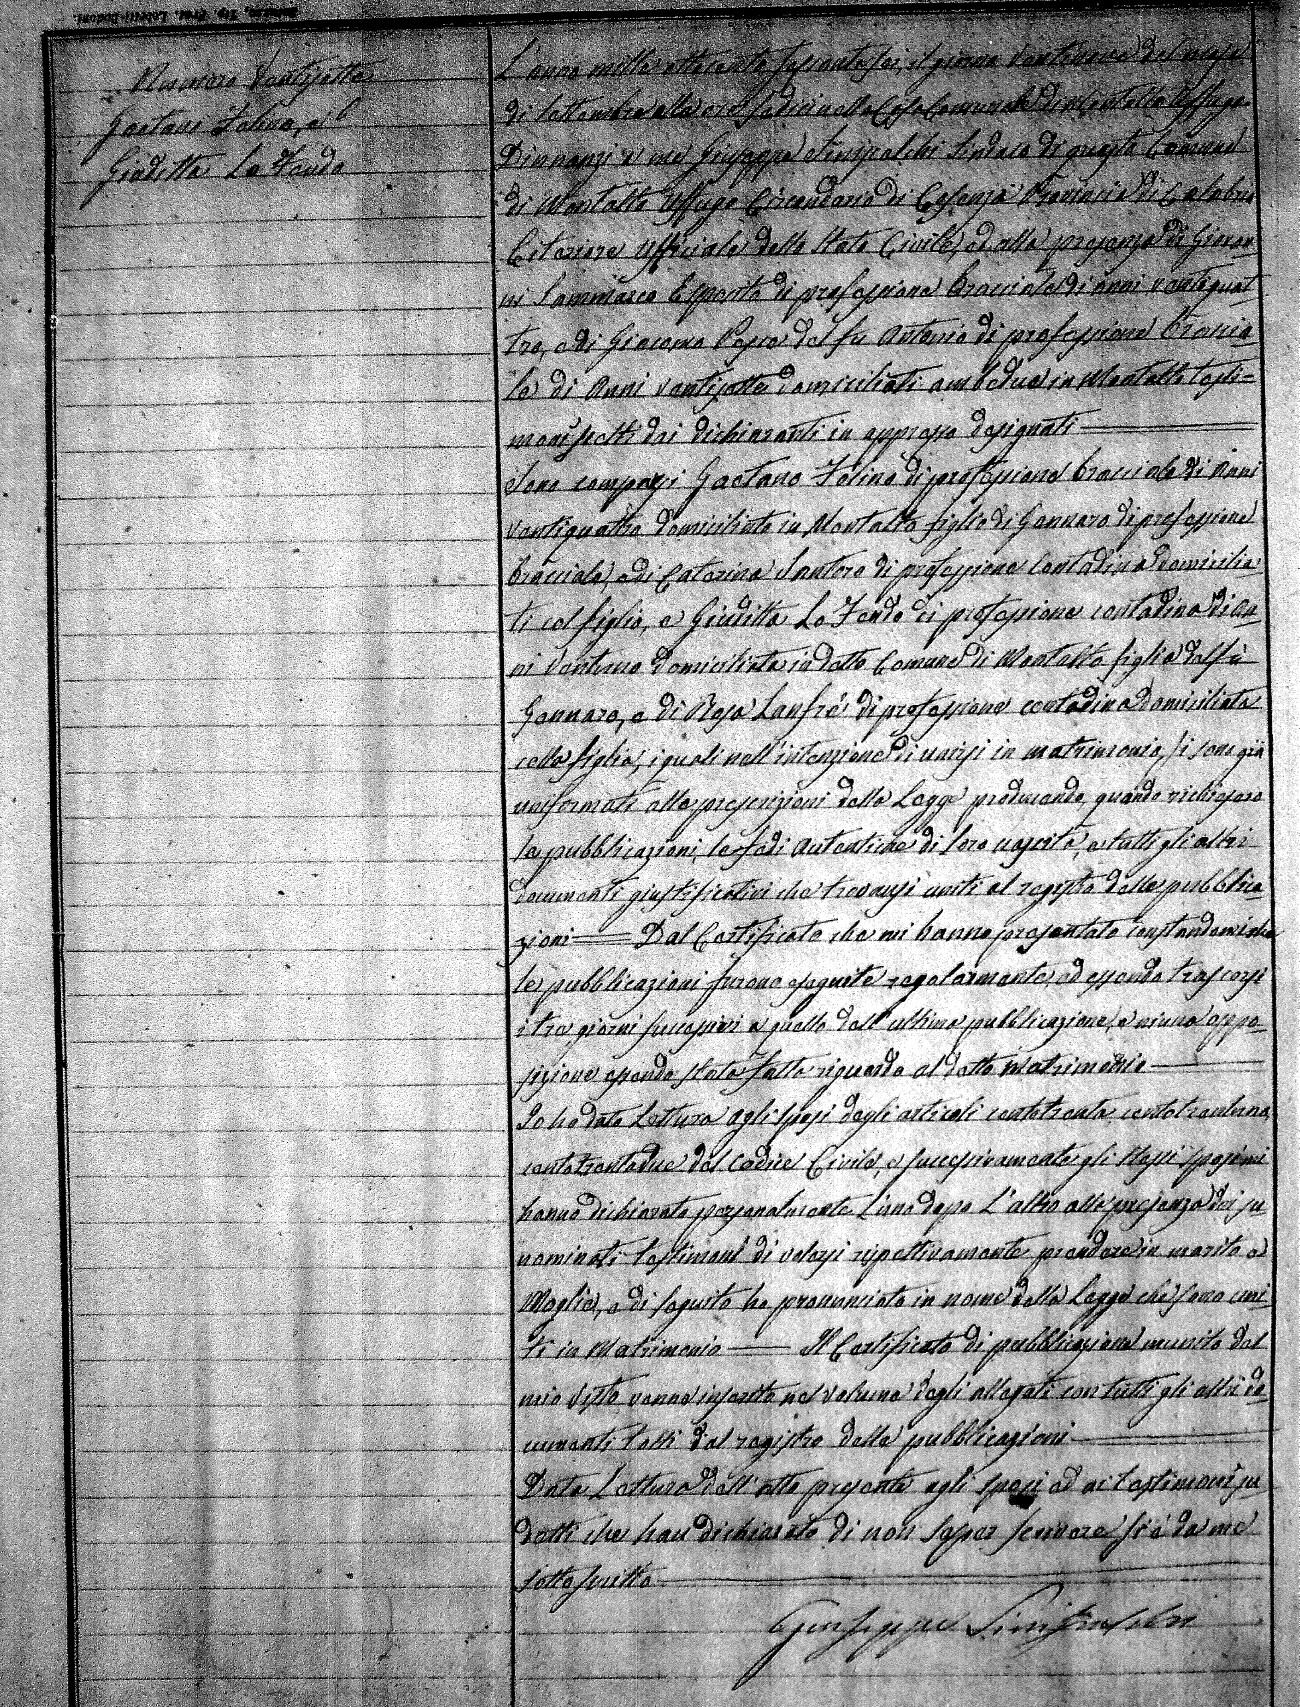 Numero Ventisette
Gaetano Folino, e
Giuditta Lo Feudo
L'anno mille ottocento sessantasei, il giorno ventinove del mese
di Settembre alle ore sedici nella Casa Comunale di Montalto Uffugo
Dinnanzi a me Giuseppe Sinisealchi Sindaco di questo Comune
di Montalto Uffugo Circondario di Cosenza Provincia di Calabria
Citeriore Ufficiale dello Stato Civile, ed alla presenza di Giovan-
ni Sammarco Esposto di professione bracciale di anni ventiquat-
tro, e di Giacomo Pepe del fu Antonio di professione braccia-
le di Anni ventisette domiciliati ambedue in Montalto testi-
moni scelti dai dichiaranti in appresso designati
Sono comparsi Gaetano Folino di professione bracciale di Anni
ventiquattro domiciliato in Montalto figlio di Gennaro di professione
bracciale, e di Caterina Santoro di professione contadina domicilia-
ti col figlio, e Giuditta Lo Feudo di professione contadina di An-
ni ventuno domiciliata in detto Comune di Montalto figlia del fu
Gennaro, e di Rosa Lanfrè di professione contadina domiciliata
colla figlia, i quali nell'intenzione di unirsi in matrimonio, si sono già
uniformati alle prescrizioni della Legge producendo, quando richiesero
le pubblicazioni, le fedi autentiche di loro nascita, e tutti gli altri
documenti giustificativi che trovansi uniti al registro delle pubblica
zioni Dal Certificato che mi hanno presentato constandomi che
le pubblicazioni furono eseguite regolarmente, ed essendo trascorsi
i tre giorni successivi a quello dell'ultima pubblicazione, e niuna oppo-
sizione essendo stata fatta riguardo al detto matrimonio
Io ho dato Lettura agli sposi degli articoli centotrenta, centotrentuno,
centotrentadue del Codice Civile, e successivamente gli stessi sposi mi
hanno dichiarato personalmente l'uno dopo l'altro alla presenza dei su
nominati testimoni di volersi rispettivamente prendere in marito e
Moglie, e di seguito ho pronunciato in nome della Legge che sono uni-
ti in Matrimonio Il Certificato di pubblicazione munito dal
mio visto venne inserito nel volume degli allegati con tutti gli altri do-
cumenti tolti dal registro delle pubblicazioni
Data Lettura dell'atto presente agli sposi ed ai testimoni su
detti che han dichiarato di non saper scrivere si è da me
sottoscritto
Giuseppe Siniscalchi